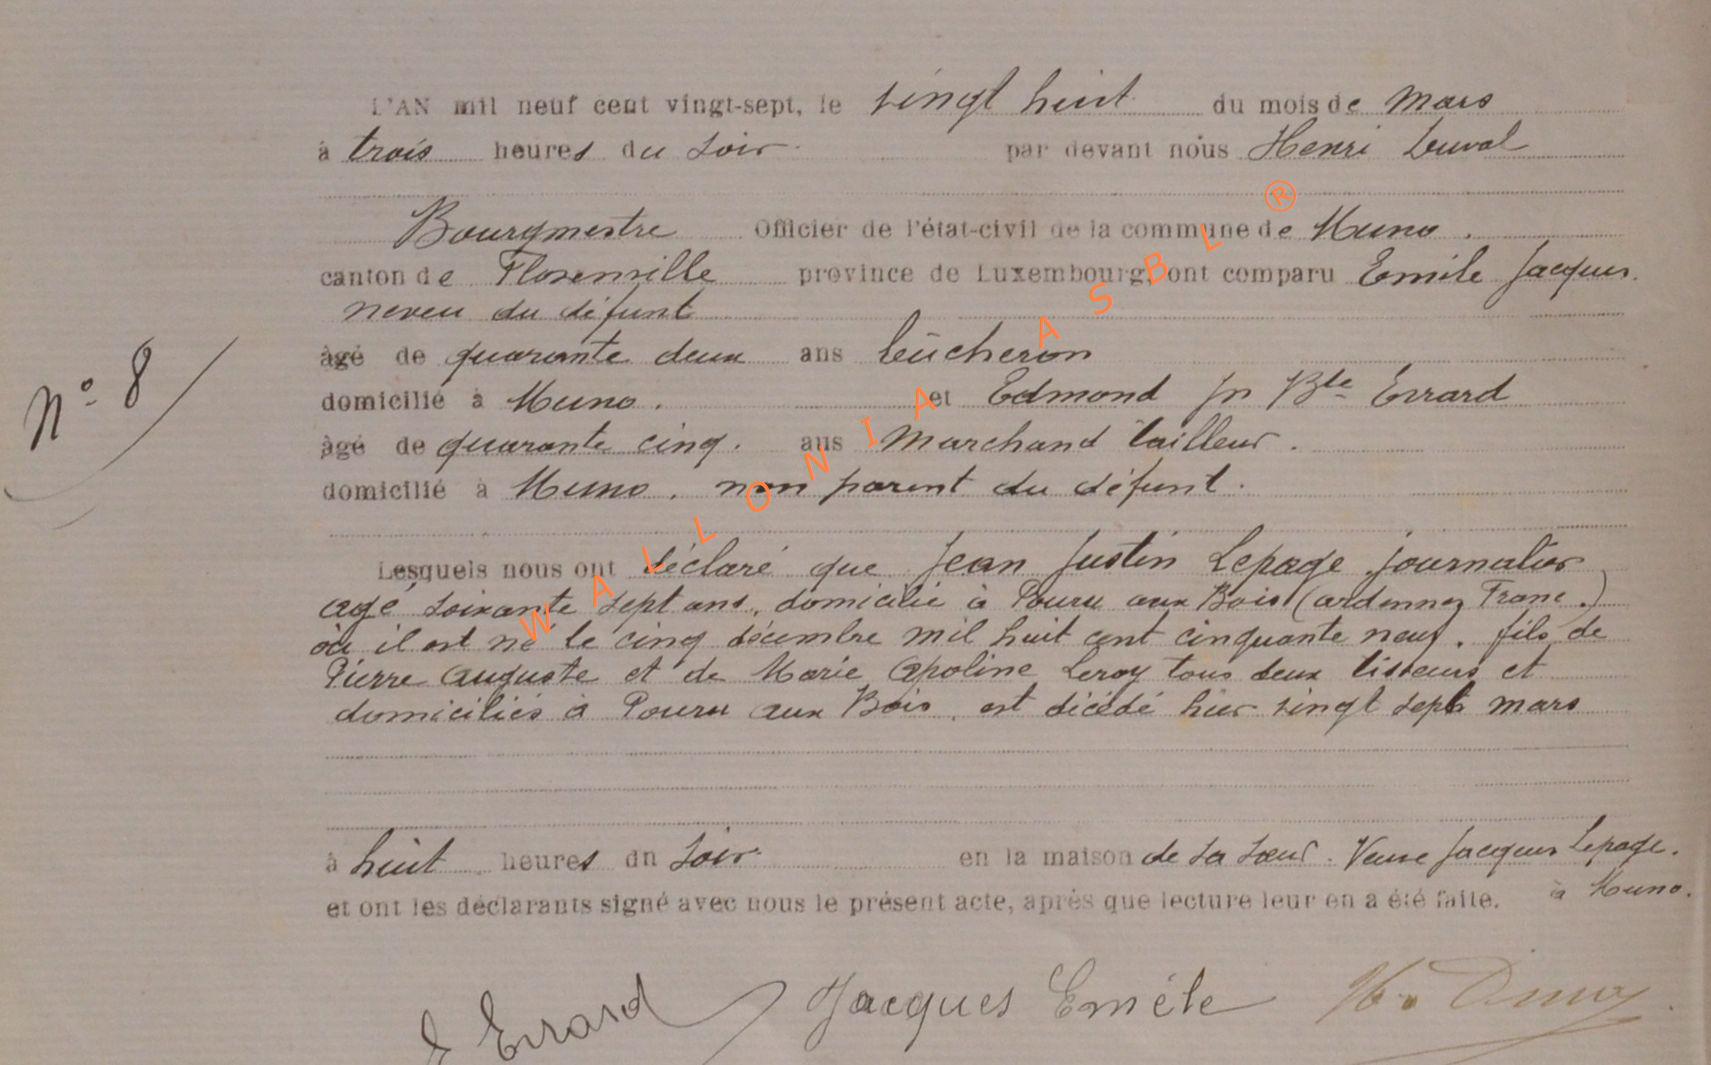 L'AN mil neuf cent vingt-sept, le vingt huit du mois de Mars
à trois heures du soir par devant nous Henri Duval
Bourgmestre Officier de l'état-civil de la commune de Muno.
canton de Florenville province de Luxembourg, ont comparu Emile Jacques.
neveu du défunt
âgé de quarante deux ans bûcheron
domicilié à Muno. et Edmond Jn Bte Errard
âgé de quarante cinq. ans Marchand tailleur.
Nº 8
domicilié à Muno. non parent du défunt.
Lesquels nous ont déclaré que Jean Justin Lepage journalier
agé soixante sept ans, domicilié à Pouru aux Bois (ardennes Franc.)
où il est né le cinq décembre mil huit cent cinquante neuf. fils de
Pierre Auguste et de Marie Apoline Leroy tous deux tisseurs et
domiciliés à Pouru aux Bois, est décédé hier vingt sept mars
à huit heures du soir en la maison de sa sœur. Veuve Jacques Lepage.
et ont les déclarants signé avec nous le présent acte, après que lecture leur en a été faite. à Muno.
E Errard Jacques Emile
WALLONIA ASBL ®